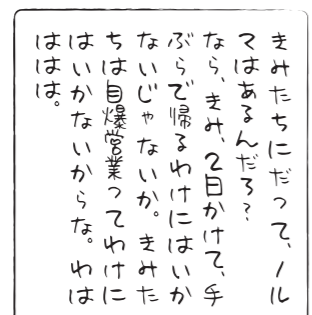 きみたちにだって、ノル
マはあるんだろ？
なら、きみ、2日かけて、手
ぶらで帰るわけにはいか
ないじゃないか。きみた
ちは自爆営業ってわけに
はいかないからな。わは
ははは。